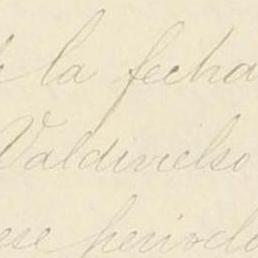 la fecha
Valdivielso
ese periodo